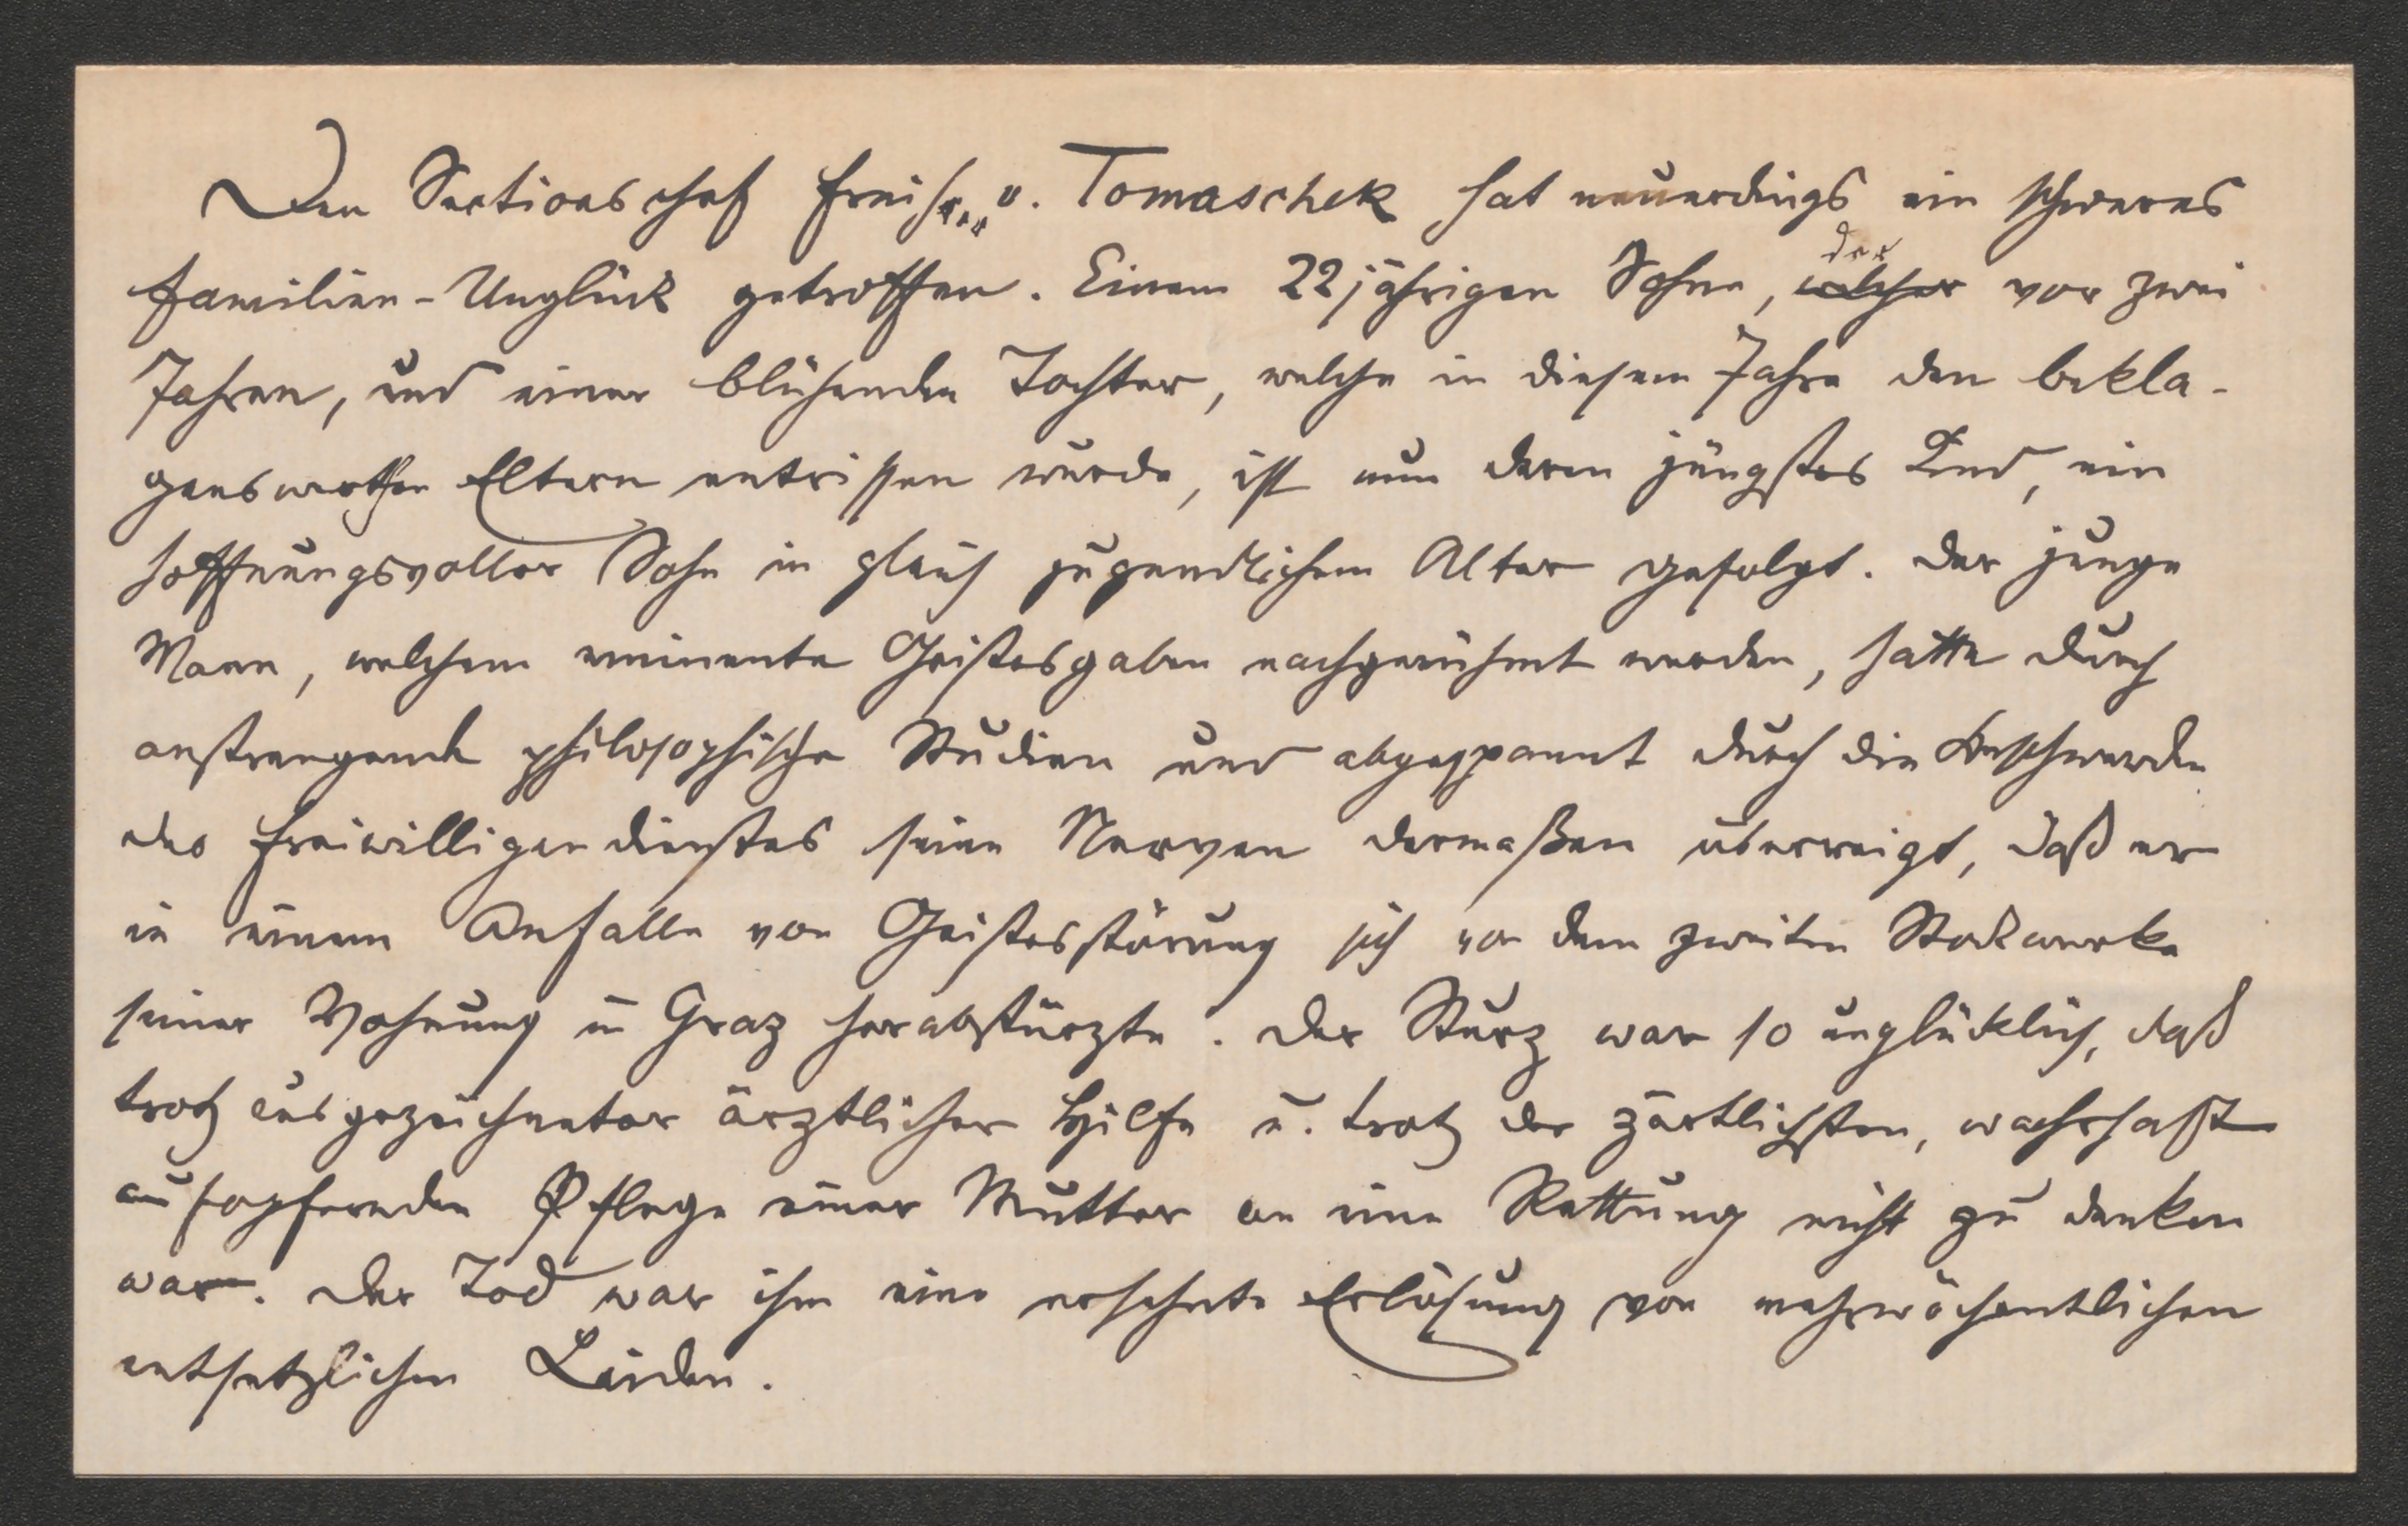 Den Sectionschef Freihrrn v. Tomaschek hat neuerdings ein schweres
Familien-Unglück getroffen. Einem 22jährigen Sohne, der welcher vor zwei
Jahren, und einer blühenden Tochter, welche in diesem Jahre den bekla-
genswerthen Eltern entrissen wurde, ist nun deren jüngstes Kind, ein
hoffnungsvoller Sohn in gleich jugendlichem Alter gefolgt. Der junge
Mann, welchem eminente Geistesgaben nachgerühmt werden, hatte durch
anstrengende philosophische Studien und abgespannt durch die Beschwerden
des Freiwilligendienstes seine Nerven dermaßen überreigt, daß er
in einem Anfalle von Geistesstörung sich von dem zweiten Stockwerke
seiner Wohnung in Graz herabstürzte. Der Sturz war so unglücklich, daß
trotz ausgezeichneter ärztlicher Hilfe u. trotz der zärtlichsten, wahrhaft
aufopfernden Pflege einer Mutter an eine Rettung nicht zu denken
war. Der Tod war ihm eine ersehnte Erlösung von mehrwöchentlichen
entsetzlichen Leiden.